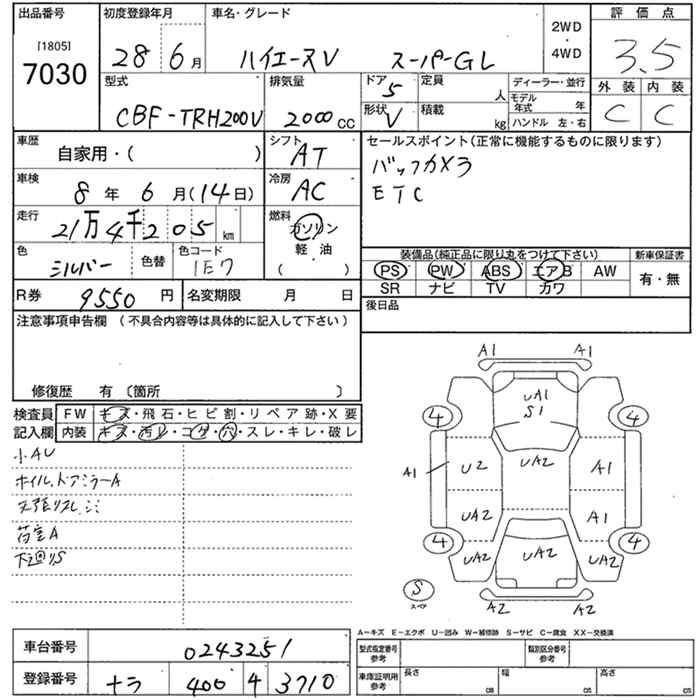 出品番号 初度登録年月 車名・グレード 評価点
[1805] 7030 28 6月 ハイエースV スーパーGL 2WD・4WD 3.5
型式 排気量 ドア 5 定員 人 ディーラー・並行 外装 内装
CBF-TRH200V 2000cc 形状 V 積載 kg モデル年式 年 C C
ハンドル 左・右
車歴 自家用・( ) シフト AT セールスポイント(正常に機能するものに限ります)
車検 8年 6月(14日) 冷房 AC バックカメラ
ETC
走行 21万4千205km 燃料 ガソリン
軽・油
( )
色 シルバー 色替 色コード 1E7 装備品(純正品に限り丸をつけて下さい) 新車保証書
PS PW ABS エアB AW 有・無
SR ナビ TV カワ
R券 9550円 名変期限 月 日 後日品
注意事項申告欄 (不具合内容等は具体的に記入して下さい)
修復歴 有〔箇所 〕
検査員 FW キズ・飛石・ヒビ割・リペア跡・X要
記入欄 内装 キズ・汚レ・コゲ・穴・スレ・キレ・破レ
小AU
ホイル.ドアミラーA
天張リスレ.シミ
荷室A
下廻リS
A1 A1
UA1
S1
4 4
A1 U2 UA2 A1
UA2 A1
4 4
UA2 UA2 UA2
S スペア A2 A2
A-キズ E-エクボ U-凹み W-補修跡 S-サビ C-腐食 XX-交換済
車台番号 0243251 型式指定番号 参考 類別区分番号 参考
登録番号 ナラ 400 4 3710 車庫証明用 参考 長さ cm 幅 cm 高さ cm